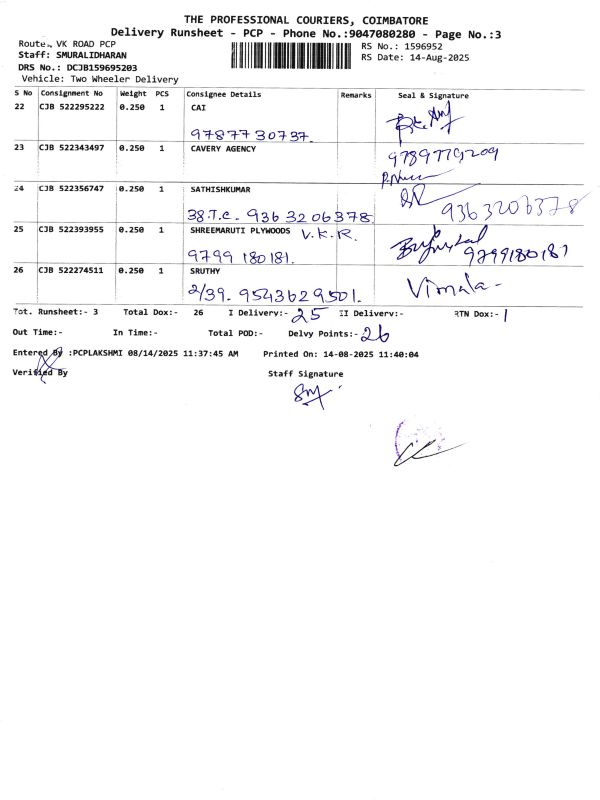 THE PROFESSIONAL COURIERS, COIMBATORE
Delivery Runsheet - PCP - Phone No.:9047080280 - Page No.:3
Route:. VK ROAD PCP
RS No.: 1596952
Staff: SMURALIDHARAN
RS Date: 14-Aug-2025
DRS No.: DCJB159695203
Vehicle: Two Wheeler Delivery
S No Consignment No Weight PCS Consignee Details Remarks Seal & Signature
22 CJB 522295222 0.250 1 CAI
9787730737.
23 CJB 522343497 0.250 1 CAVERY AGENCY 9789779209
24 CJB 522356747 0.250 1 SATHISHKUMAR
38.T.C. 9363206378. 9363206378
25 CJB 522393955 0.250 1 SHREEMARUTI PLYWOODS V.K.R.
9799 180181. 9799180181
26 CJB 522274511 0.250 1 SRUTHY
2/39. 9543629501. Vimala-
Tot. Runsheet:- 3 Total Dox:- 26 I Delivery:- 25 II Delivery:- RTN Dox:- 1
Out Time:- In Time:- Total POD:- Delvy Points:- 26
Entered By :PCPLAKSHMI 08/14/2025 11:37:45 AM Printed On: 14-08-2025 11:40:04
Verified By Staff Signature